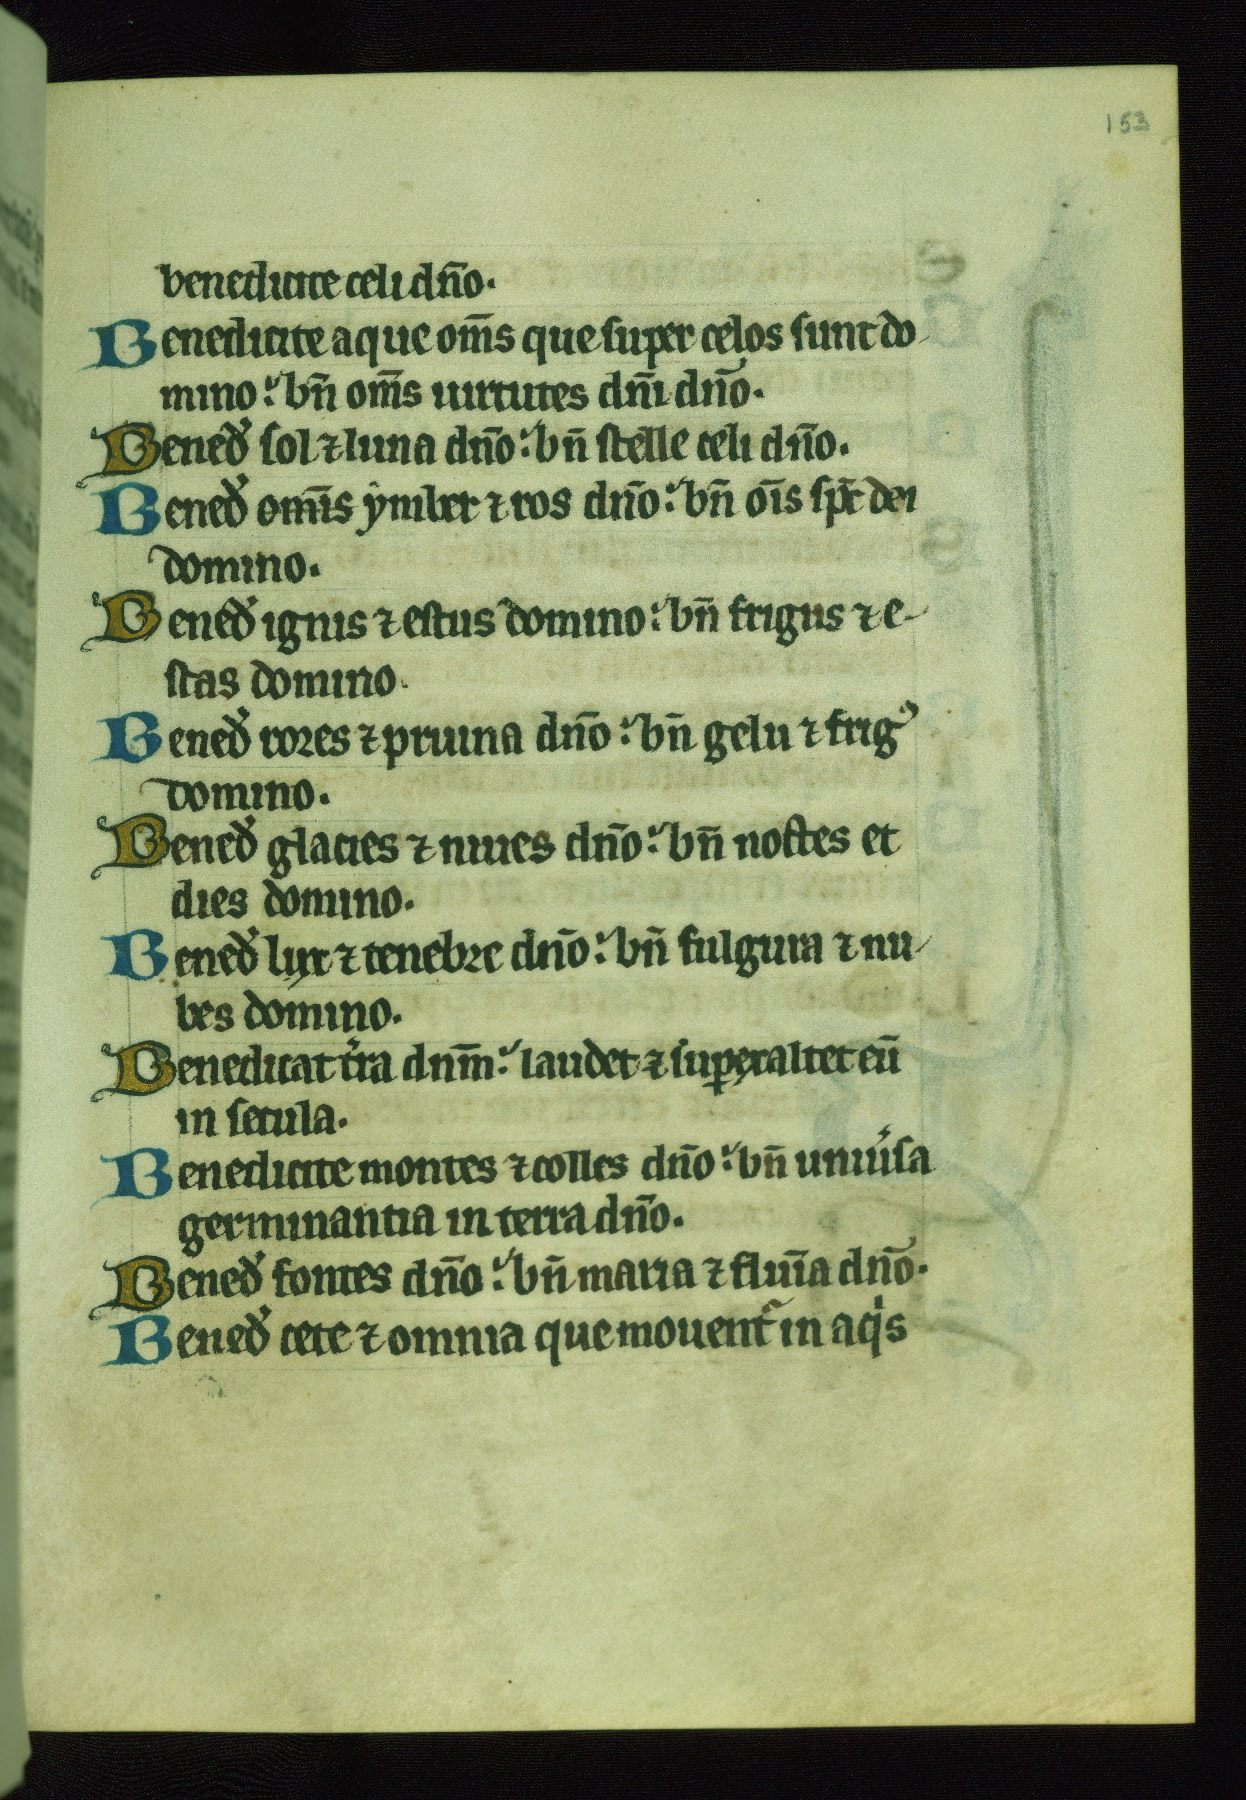 153
benedicite celi dn̄o.
Benedicite aque om̄s que super celos sunt do
mino: bn̄ om̄s uirtutes dn̄i dn̄o.
Bened̉ sol ⁊ luna dn̄o: bn̄ stelle celi dn̄o.
Bened̉ omīs ymber ⁊ ros dn̄o: bn̄ oīs sp̄c dei
domino.
Bened̉ ignis ⁊ estus domino: bn̄ frigus ⁊ e-
stas domino.
Bened̉ rores ⁊ pruina dn̄o: bn̄ gelu ⁊ frigꝰ
domino.
Bened̉ glacies ⁊ niues dn̄o: bn̄ noctes et
dies domino.
Bened̉ lux ⁊ tenebre dn̄o: bn̄ fulgura ⁊ nu-
bes domino.
Benedicat t̄ra dnm̄: laudet ⁊ suꝑexaltet eū
in secula.
Benedicite montes ⁊ colles dn̄o: bn̄ uniu̓sa
germinantia in terra dn̄o.
Bened̉ fontes dn̄o: bn̄ maria ⁊ fluīa dn̄o.
Bened̉ cete ⁊ omnia que mouent̄ in aqⁱs